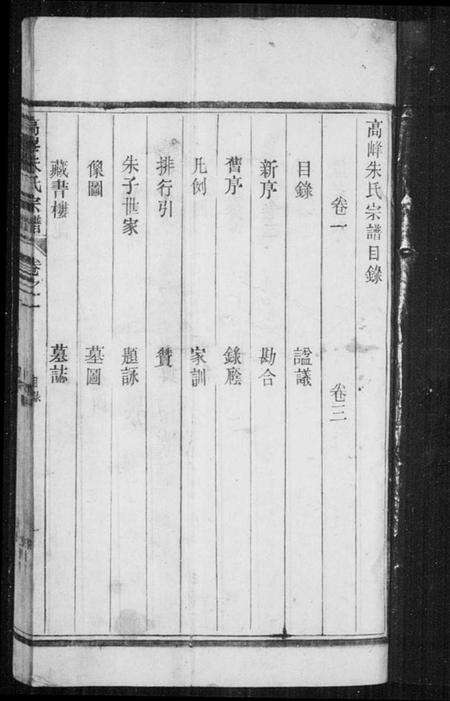 高峰朱氏宗譜目錄
卷一
卷三
目錄
諡議
新序
勘合
舊序
錄牒
凡例
家訓
排行引
贊
朱子世家
題詠
像圖
墓圖
藏書樓
墓誌
高峰朱氏宗譜
卷之一
目錄